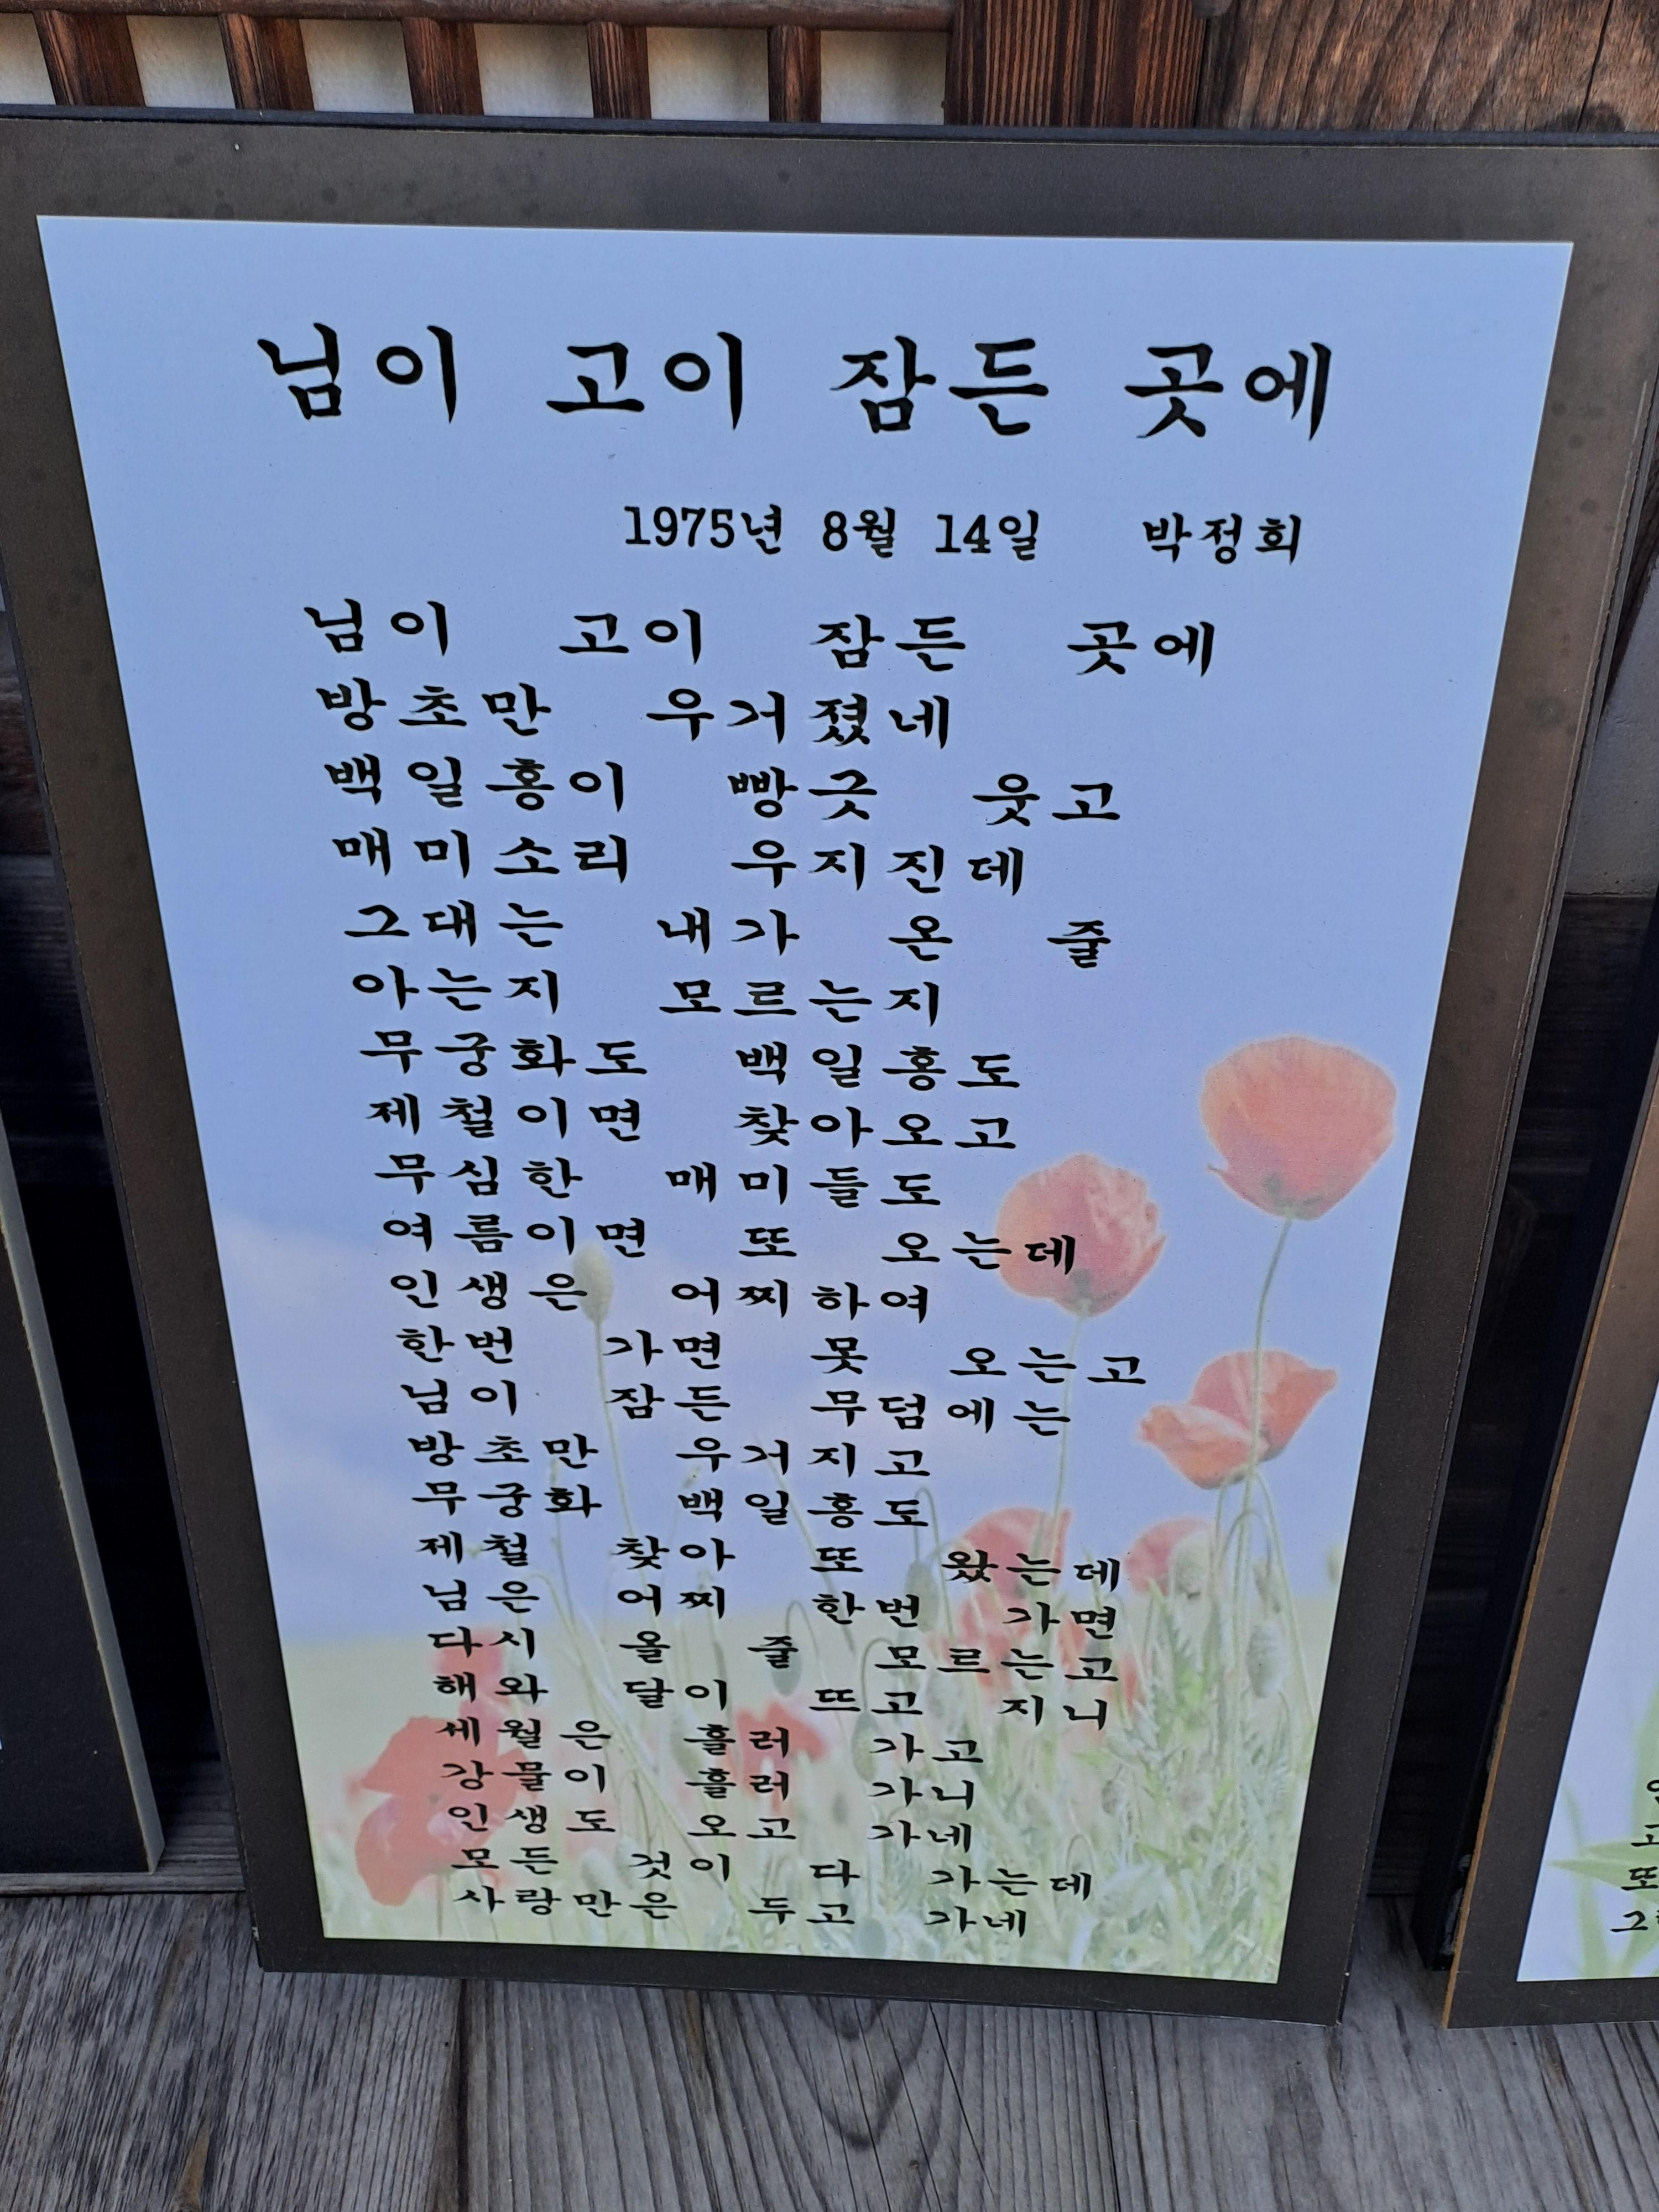 님이 고이 잠든 곳에
1975년 8월 14일 박정희
님이 고이 잠든 곳에
방초만 우거졌네
백일홍이 빵긋 웃고
매미소리 우지진데
그대는 내가 온 줄
아는지 모르는지
무궁화도 백일홍도
제철이면 찾아오고
무심한 매미들도
여름이면 또 오는데
인생은 어찌하여
한번 가면 못 오는고
님이 잠든 무덤에는
방초만 우거지고
무궁화 백일홍도
제철 찾아 또 왔는데
님은 어찌 한번 가면
다시 올 줄 모르는고
해와 달이 뜨고 지니
세월은 흘러 가고
강물이 흘러 가니
인생도 오고 가네
모든 것이 다 가는데
사랑만은 두고 가네
고
또